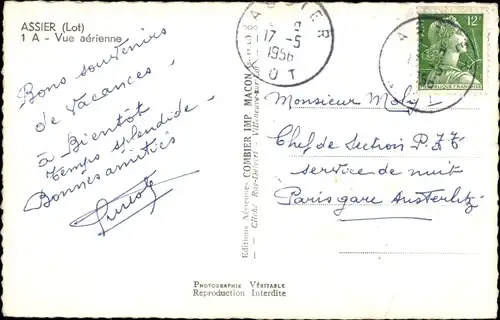 ASSIER (Lot)
1 A - Vue aérienne
Bons souvenirs
de vacances.
à Bientôt
Temps splendide
Bonnes amitiés
ASSIER
17-5
1956
LOT
12F
Monsieur
Chef de Section P.T.T
service de nuit
Paris gare Austerlitz
Editions Aériennes COMBIER IMP. MACON
Cliché Ray-Delvert - Villeneuve-sur-Lot
PHOTOGRAPHIE VÉRITABLE
Reproduction Interdite